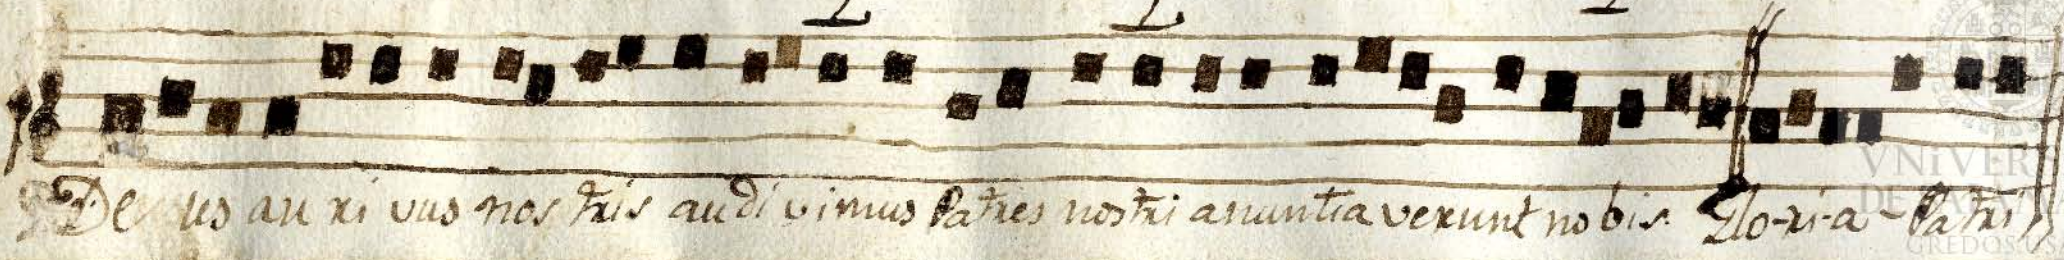 Deus au ri vus nos tris au di vimus Patres nostri anuntia verunt no bis. Glo-ri-a-Patri
VNiVER
GREDOS.US